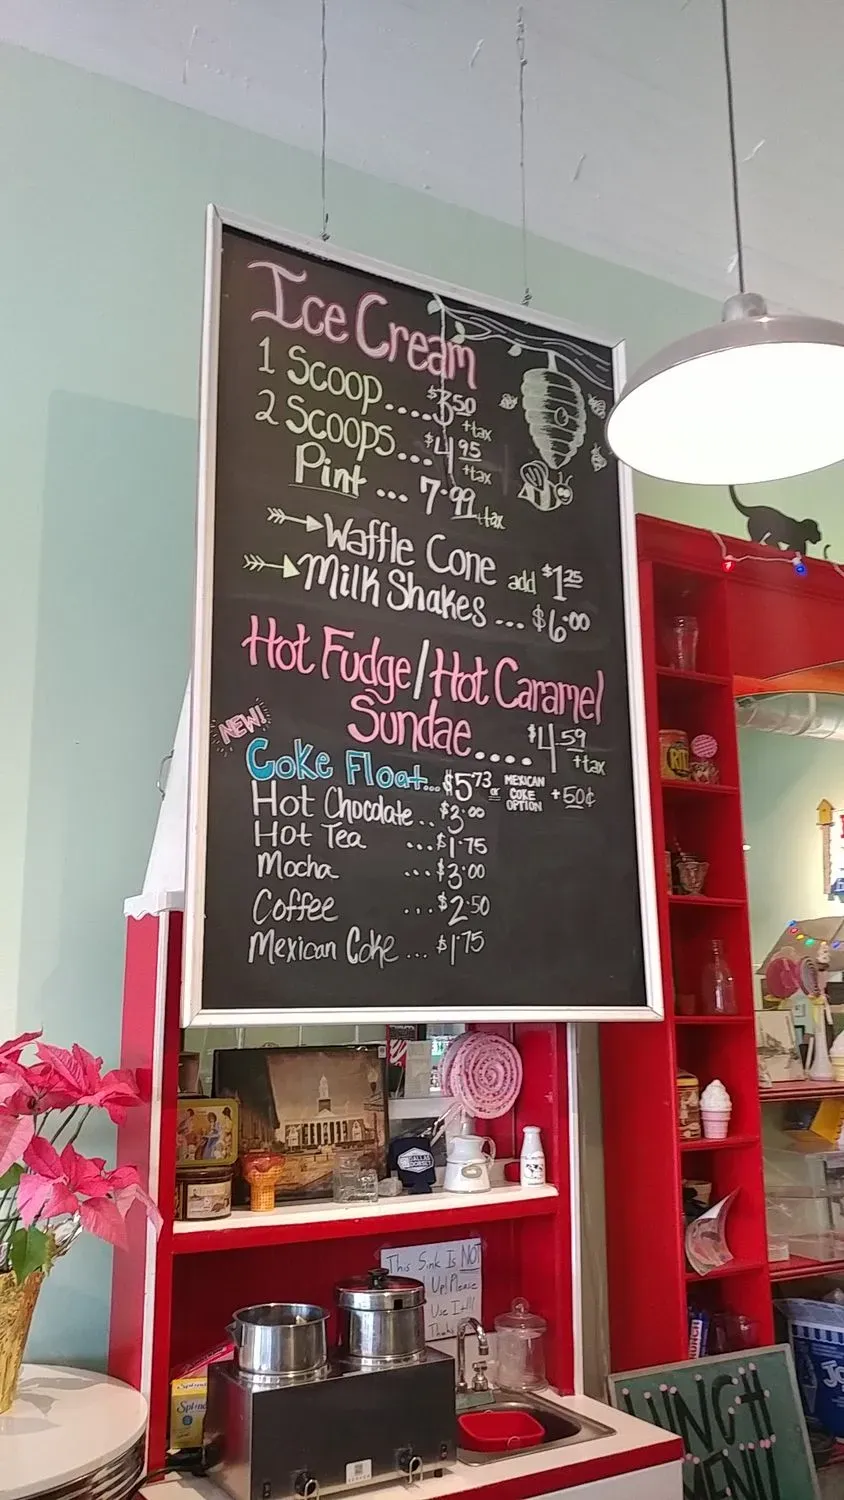 Ice Cream
1 Scoop....$3.50
+tax
2 Scoops...$4.95
+tax
Pint ... 7.99 +tax
Waffle Cone add $1.25
Milk Shakes ... $6.00
Hot Fudge/Hot Caramel
Sundae.... $4.59
+tax
NEW!
Coke Float...$5.73 or MEXICAN COKE OPTION +50¢
Hot Chocolate.. $3.00
Hot Tea ...$1.75
Mocha ...$3.00
Coffee ...$2.50
Mexican Coke ... $1.75
This Sink Is NOT
Up! Please
Use It!!!
Splenda
LUNCH
MENU